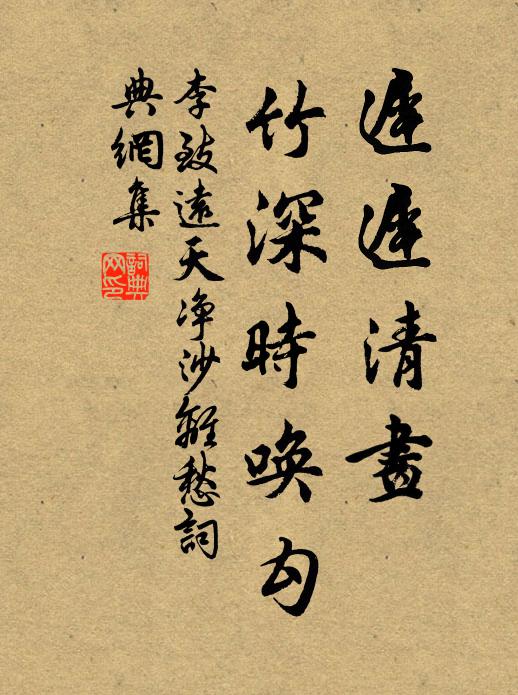 遲遲清晝
竹深時喚勾
李致遠天净沙離愁詞
典網集
詞典
网印